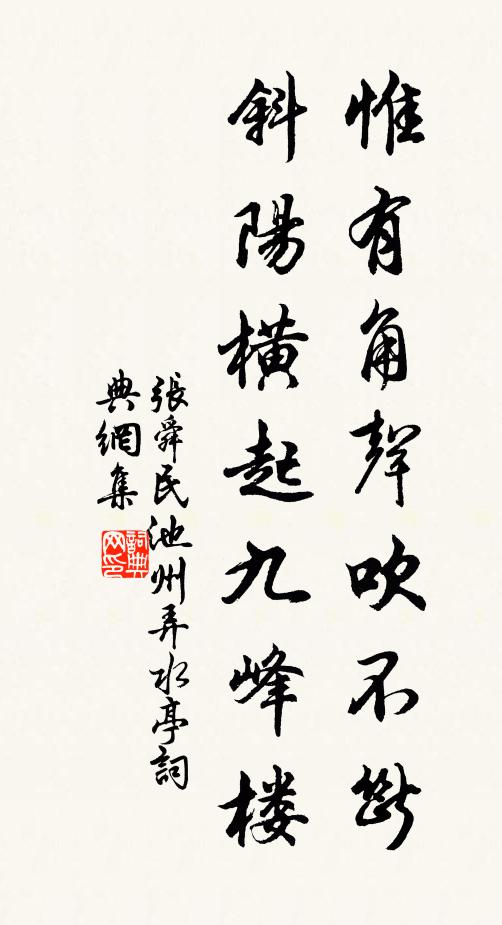 惟有角聲吹不斷
斜陽橫起九峰楼
張舜民池州弄水亭詞
典網集
詞典网印